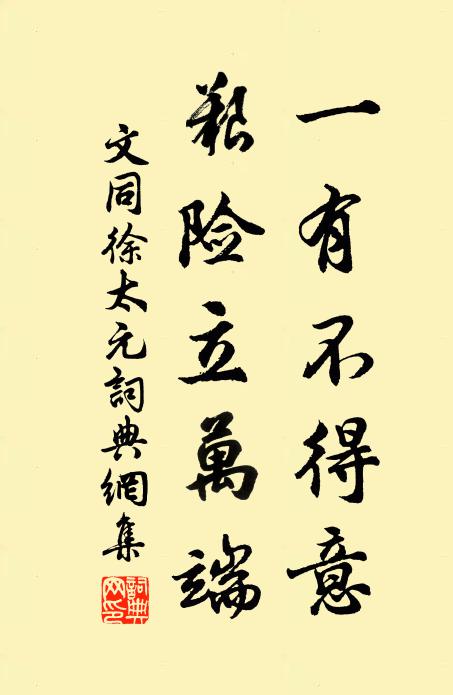 一有不得意
艱险立萬端
文同徐太元詞典網集
詞典
网印